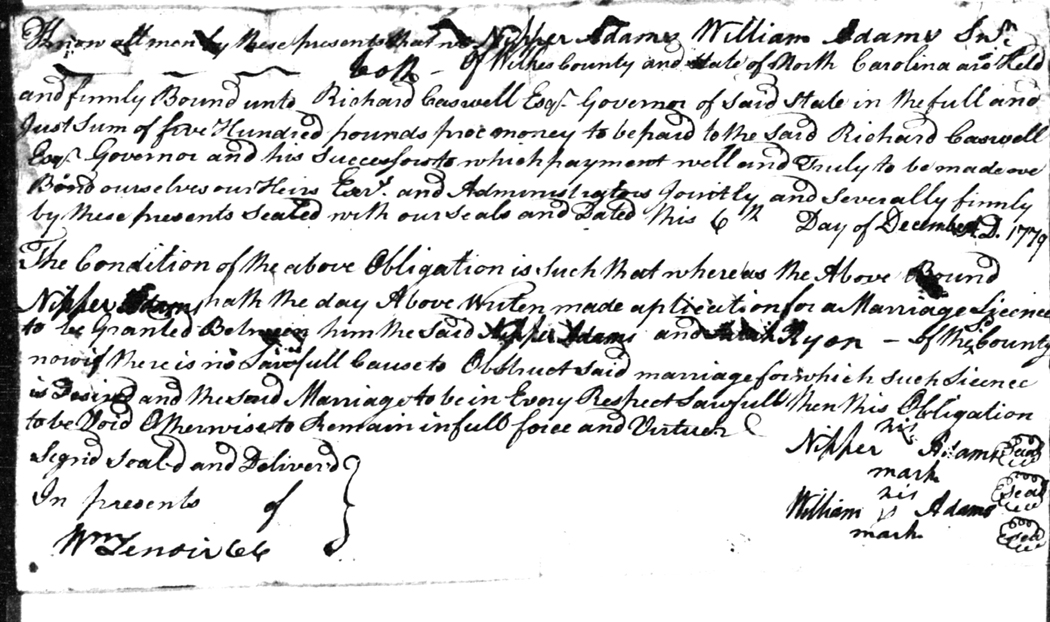 Know all men by these presents that we Nipper Adams William Adams Snr.
both - Of Wilkes County and State of North Carolina are Held
and firmly Bound unto Richard Caswell Esqr. Governor of said State in the full and
Just Sum of five Hundred pounds proc money to be paid to the said Richard Caswell
Esqr. Governor and his Successors to which payment well and Truly to be made we
Bond ourselves our Heirs Exrs. and Administrators Jointly and Severally firmly
by these presents Sealed with our seals and Dated this 6th Day of December A.D. 1779
The Condition of the above Obligation is such that whereas the Above Bound
Nipper Adams hath the day Above Writen made aplication for a Marriage Licence
to be Granted Between him the said Nipper Adams and Sarah Ryon - of the sd County
now if there is no Lawfull Cause to Obstruct said marriage for which such Licence
is Desired and the said Marriage to be in Every Respect Lawfull then this Obligation
to be Void Otherwise to Remain in full force and Virtue
Segnd Seald and Deliverd
In presents of
Wm Lenoir CC
his
Nipper Adams Seal
mark
his
William Adams Seal
mark
Seal